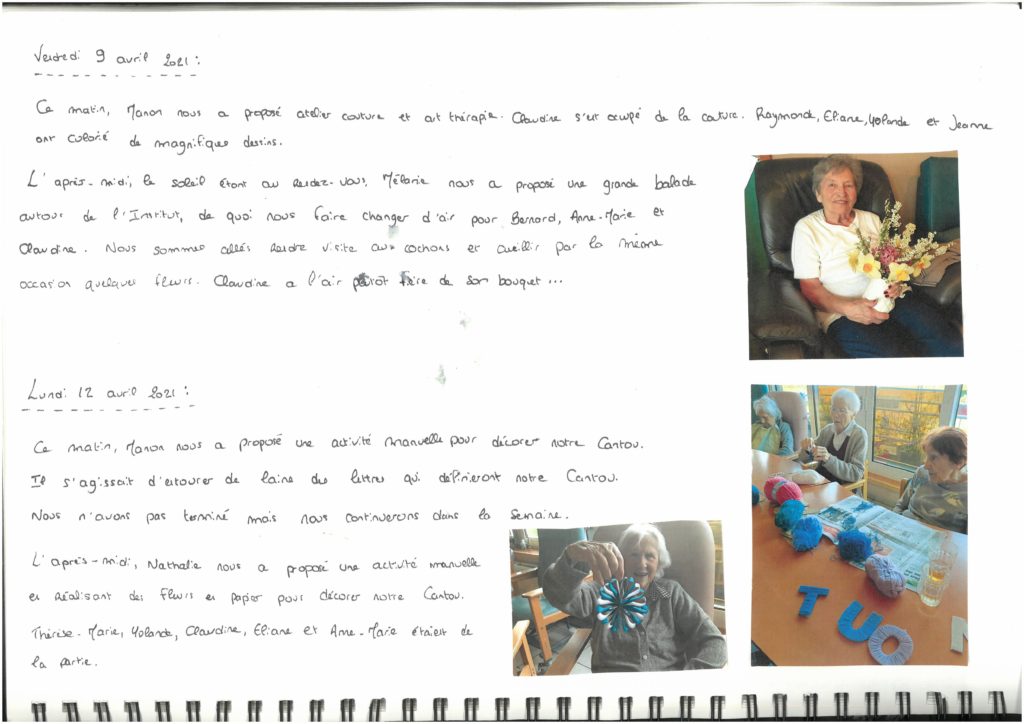 Vendredi 9 avril 2021 :
Ce matin, Manon nous a proposé atelier couture et art thérapie. Claudine s'est occupé de la couture. Raymonde, Eliane, Yolande et Jeanne
ont colorié de magnifiques dessins.
L'après-midi, le soleil étant au rendez-vous, Mélanie nous a proposé une grande balade
autour de l'Institut, de quoi nous faire changer d'air pour Bernard, Anne-Marie et
Claudine. Nous sommes allés rendre visite aux cochons et cueillir par la même
occasion quelques fleurs. Claudine a l'air de son bouquet...
Lundi 12 avril 2021 :
Ce matin, Manon nous a proposé une activité manuelle pour décorer notre Cantou.
Il s'agissait d'entourer de laine des lettres qui définieront notre Cantou.
Nous n'avons pas terminé mais nous continuerons dans la semaine.
L'après-midi, Nathalie nous a proposé une activité manuelle
en réalisant des fleurs en papier pour décorer notre Cantou.
Thérèse-Marie, Yolande, Claudine, Eliane et Anne-Marie étaient de
la partie.
T U O N